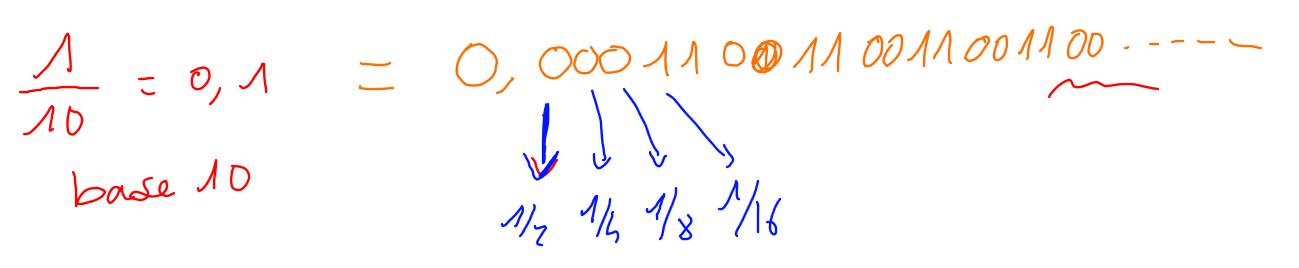 1/10 = 0,1 = 0,000110011001100 1100 ......
base 10
1/2 1/4 1/8 1/16